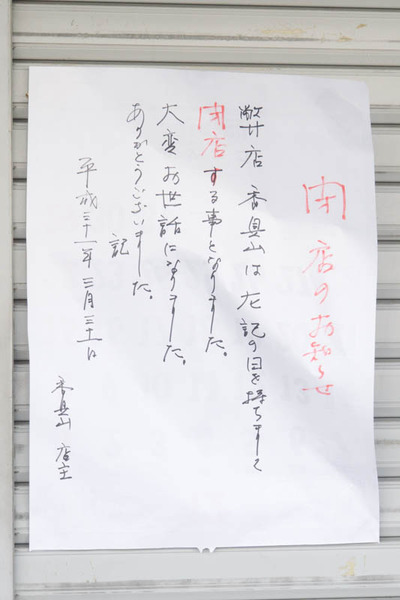 閉店のお知らせ
弊店 香具山は左記の日を持ちまして
閉店する事となりました。
大変お世話になりました。
ありがとうございました。
記
平成三十一年 三月三十一日
香具山 店主